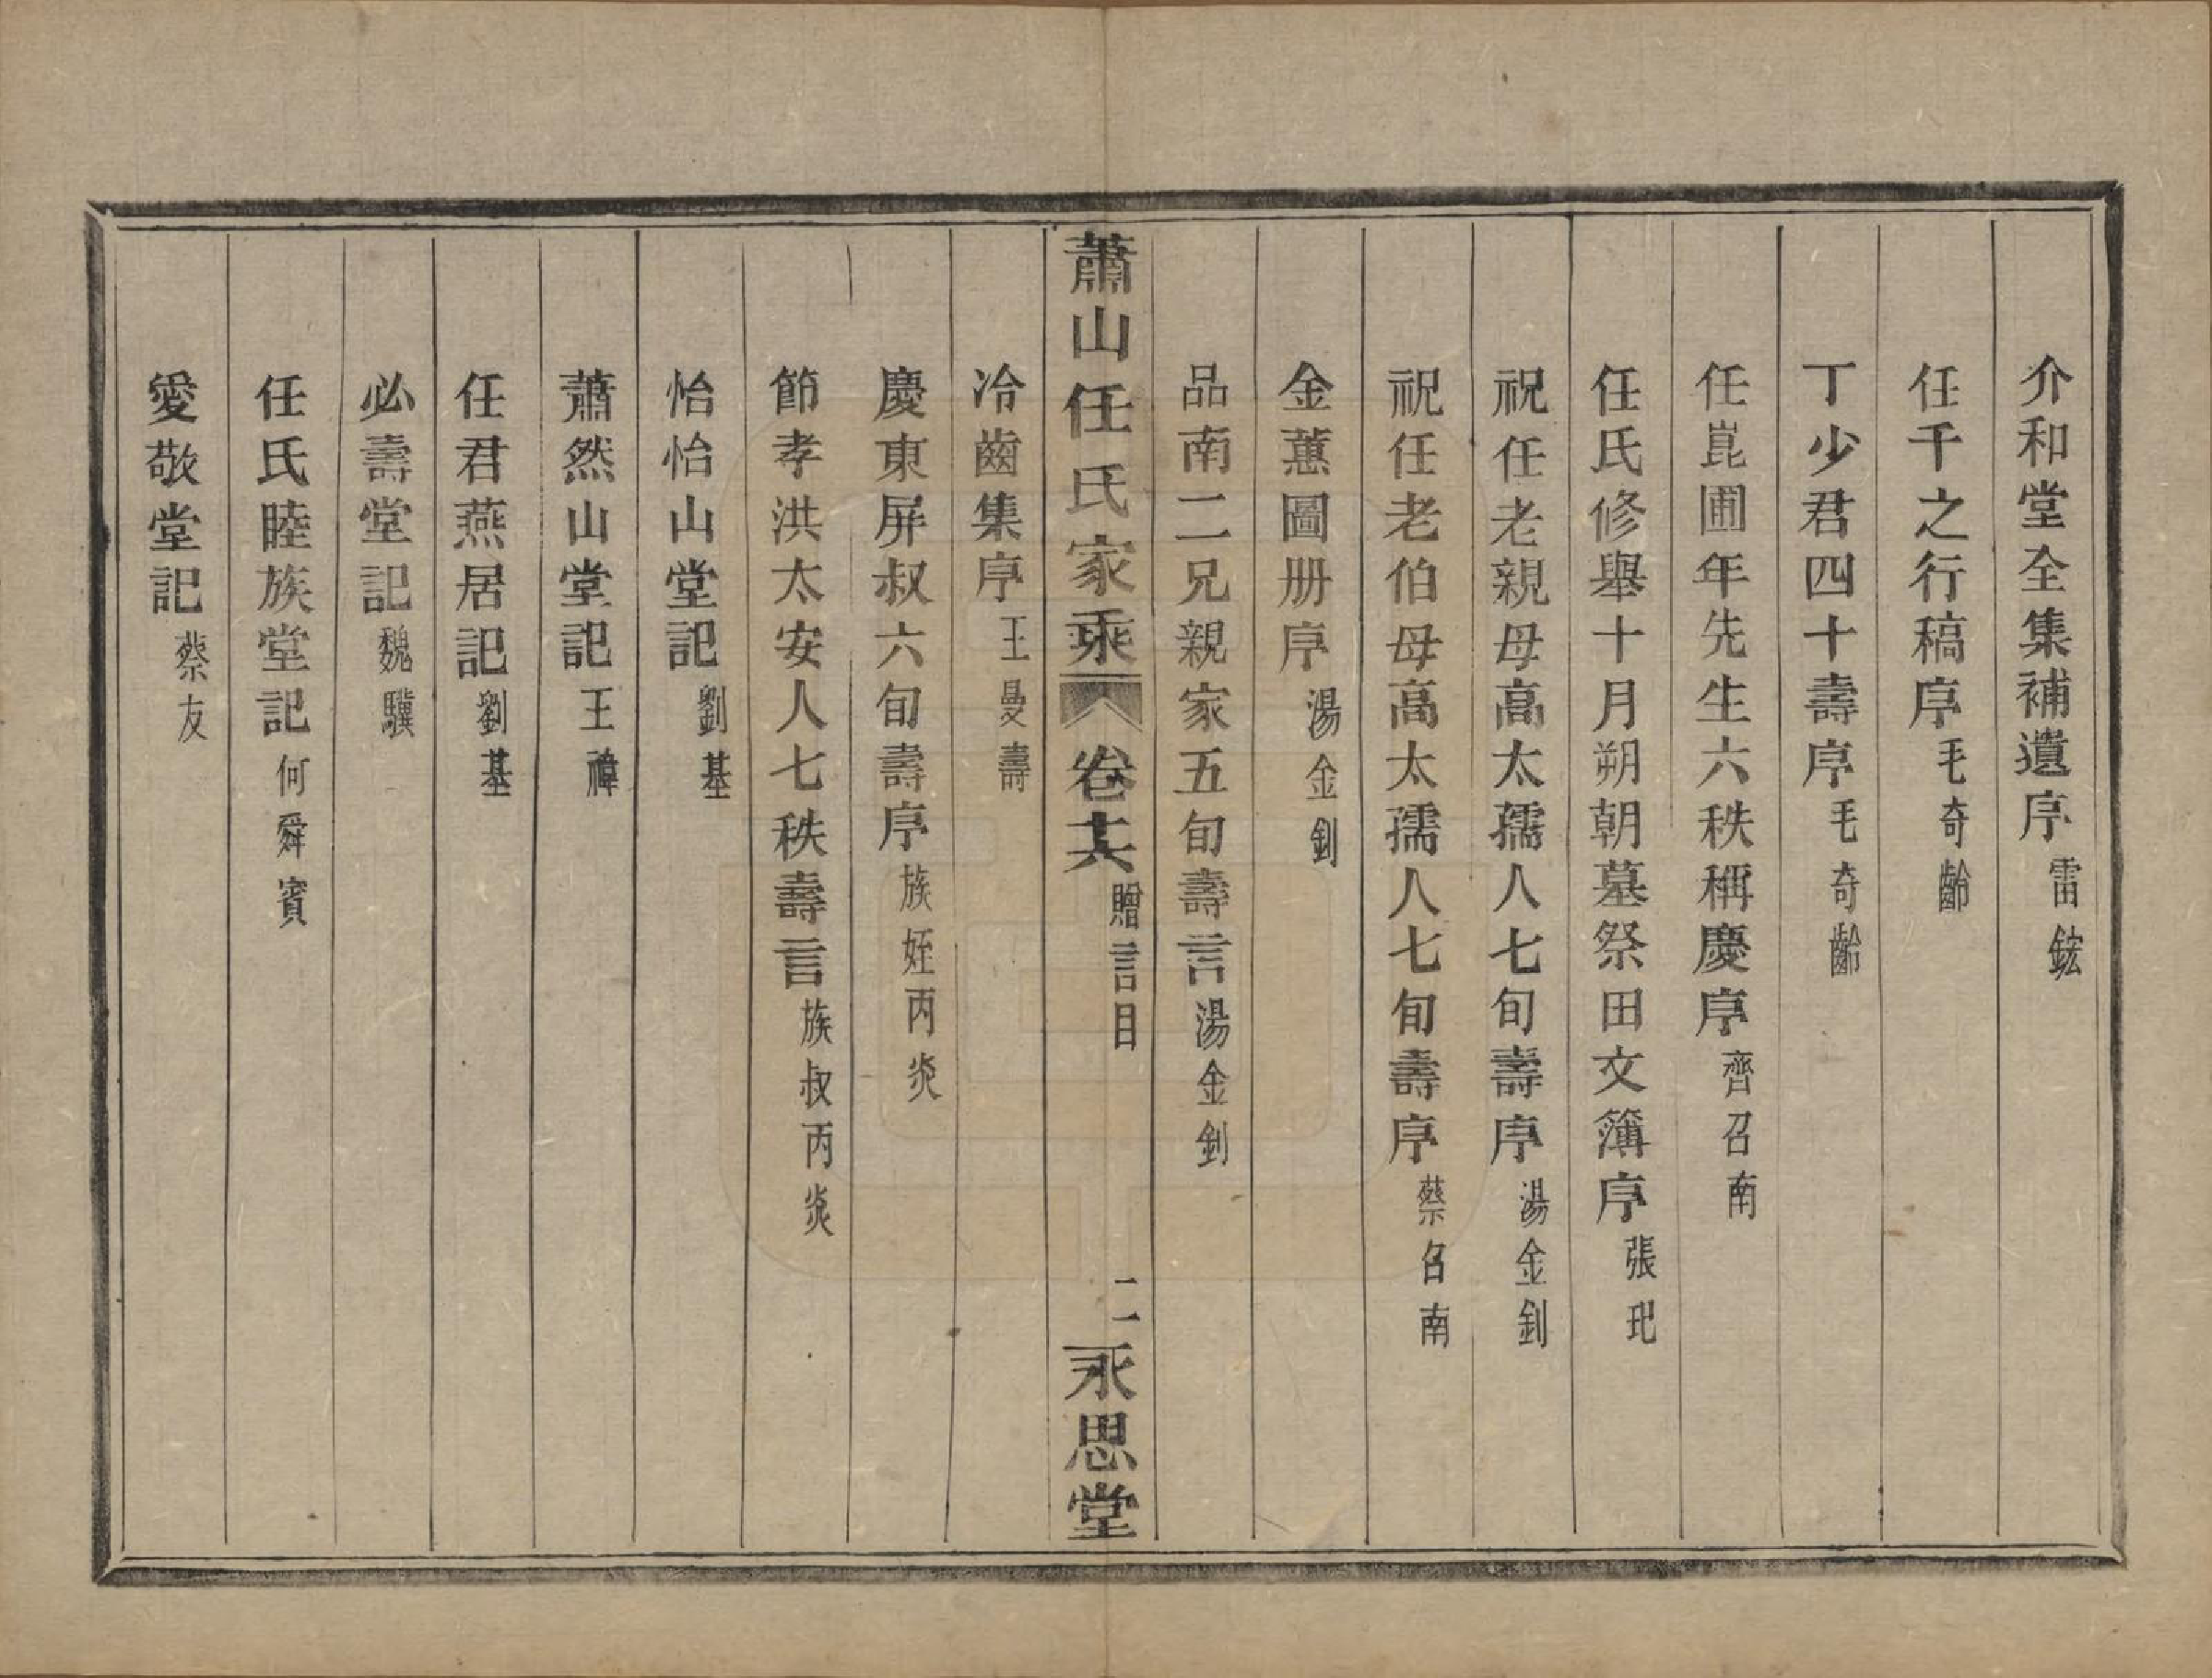 介和堂全集補遺序 雷鋐
任千之行稿序 毛奇齡
丁少君四十壽序 毛奇齡
任崑圃年先生六秩稱慶序 齊召南
任氏修舉十月朔朝墓祭田文簿序 張玭
祝任老親母高太孺人七旬壽序 湯金釗
祝任老伯母高太孺人七旬壽序 蔡召南
金蕙圖册序 湯金釗
品南二兄親家五旬壽言 湯金釗
蕭山任氏家乘 卷十六 贈言目 二 永思堂
冷齒集序 王曼壽
慶東屏叔六旬壽序 族姪丙炎
節孝洪太安人七秩壽言 族叔丙炎
怡怡山堂記 劉基
蕭然山堂記 王禕
任君燕居記 劉基
必壽堂記 魏驥
任氏睦族堂記 何舜賓
愛敬堂記 蔡友